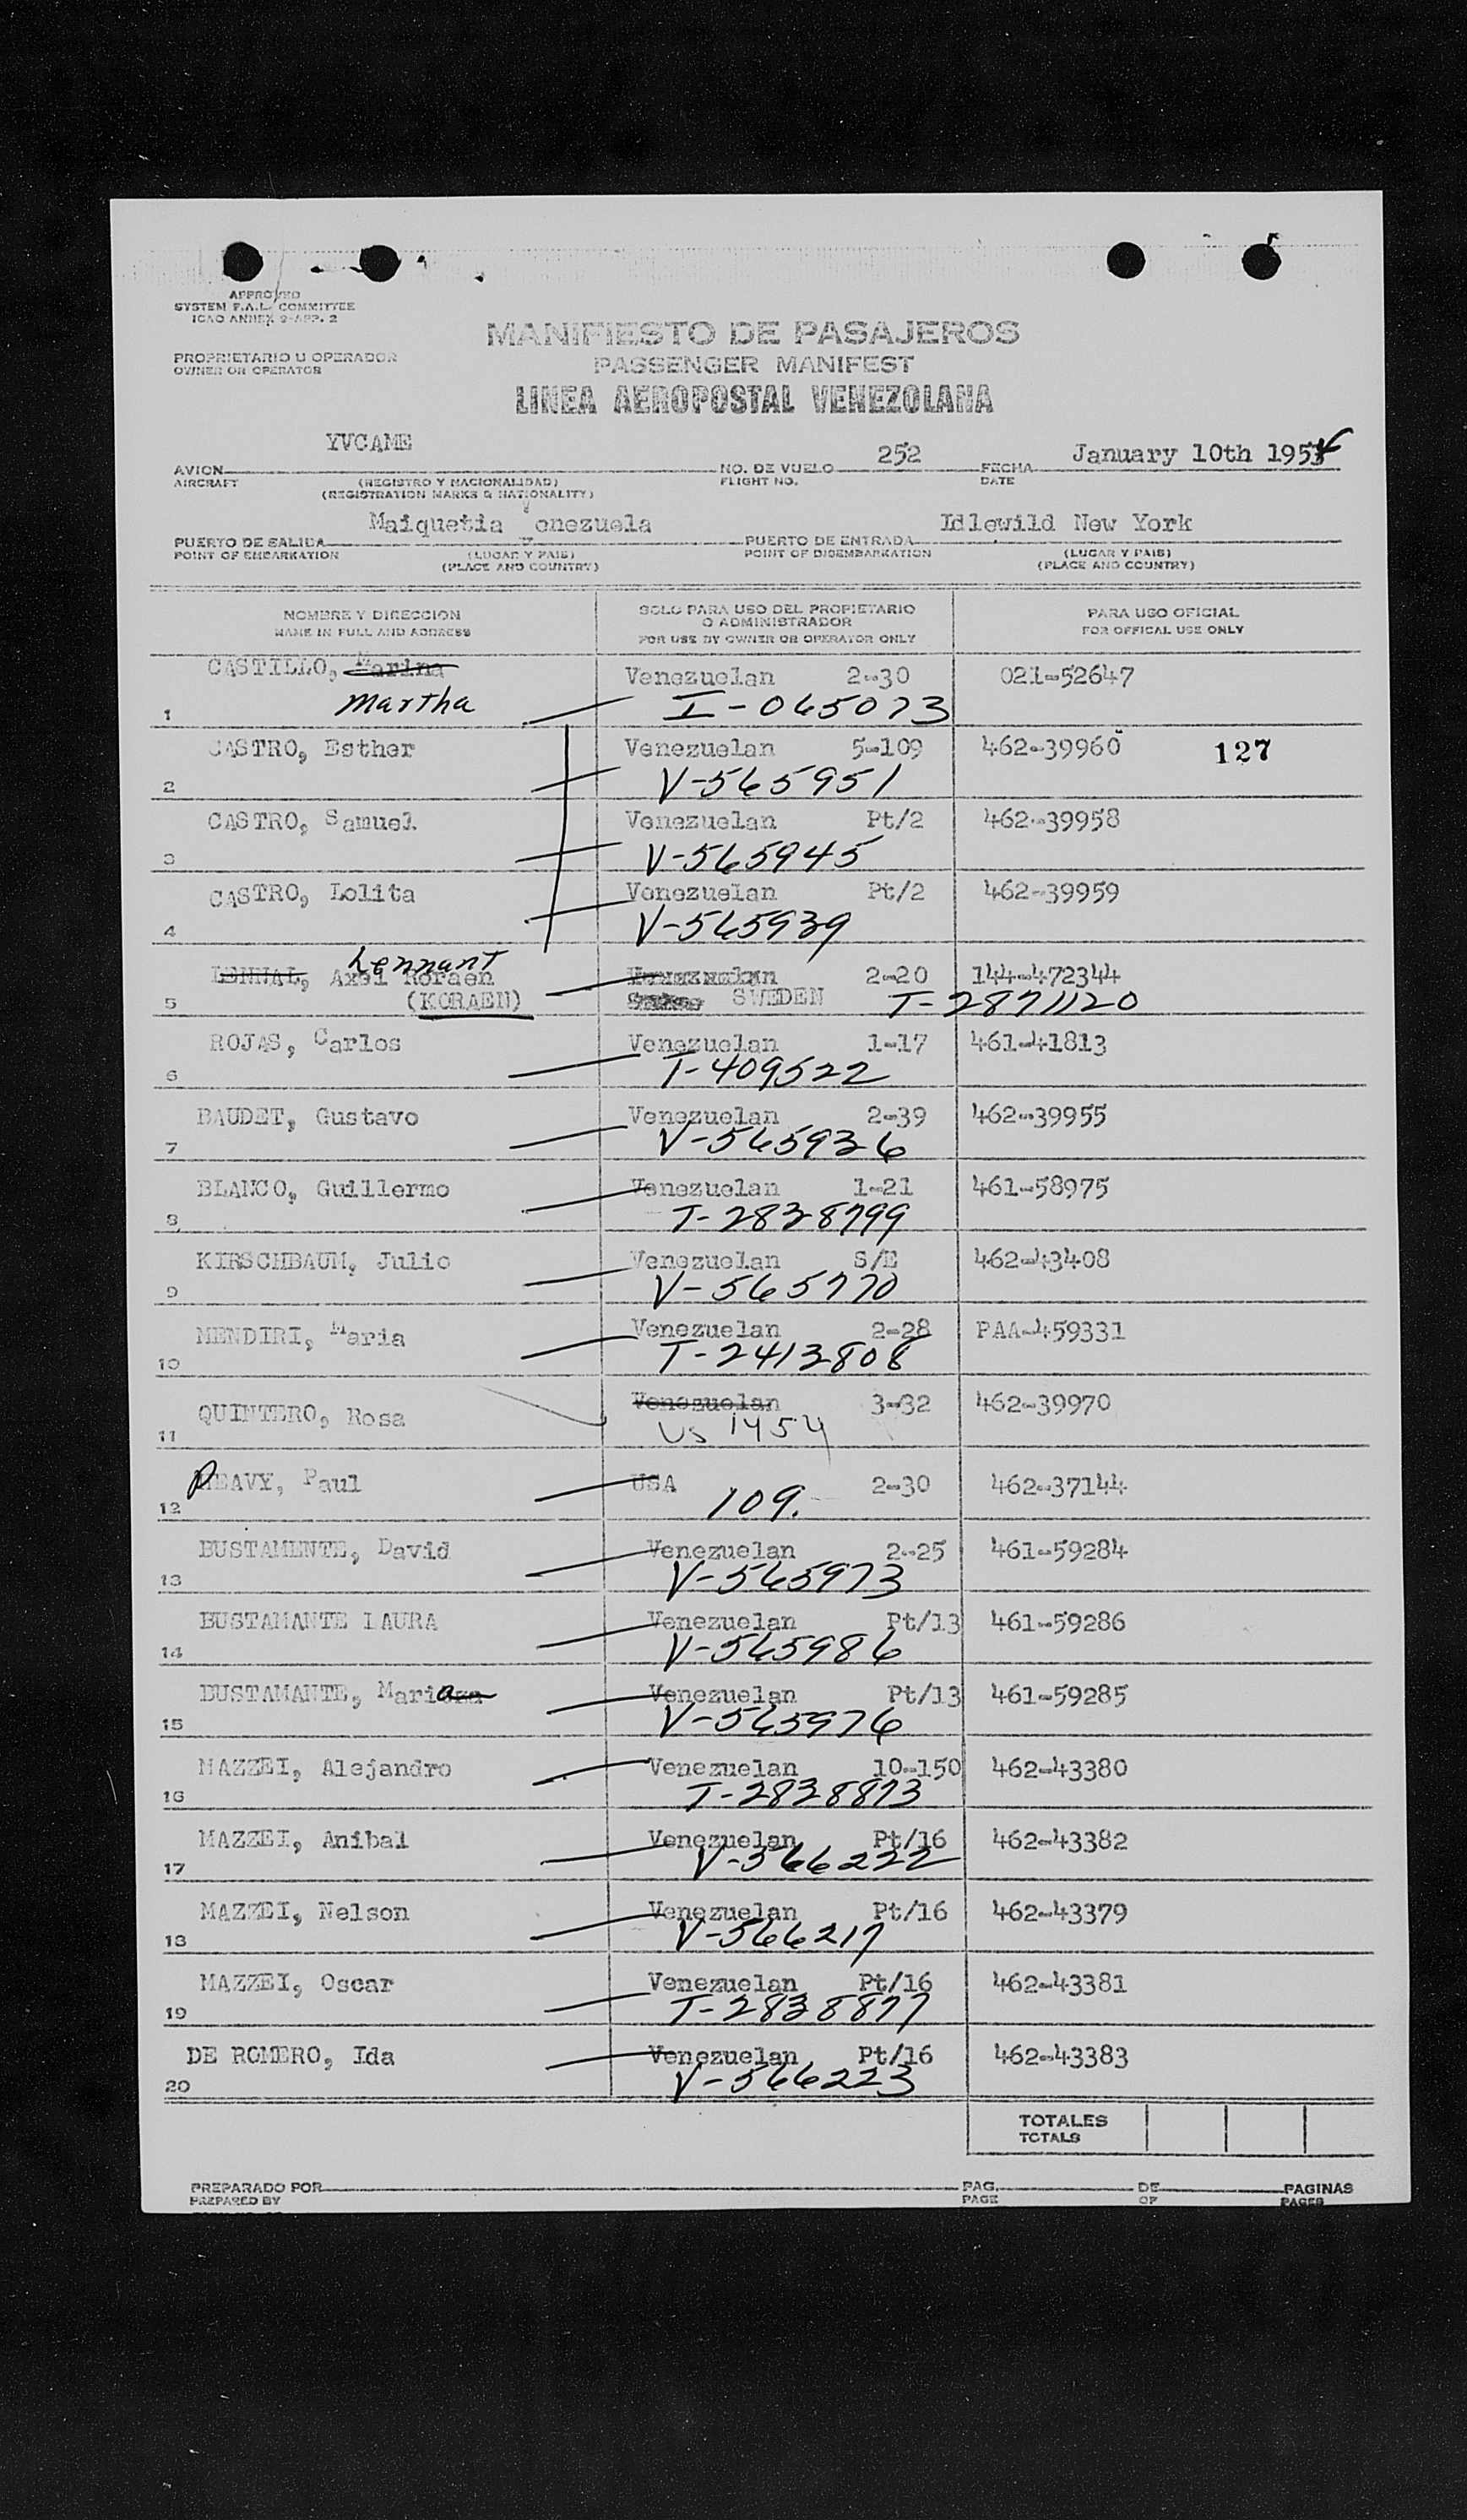 APPROVED
SYSTEM F.A.L. COMMITTEE
ICAO ANNEX 9-APP. 2
MANIFIESTO DE PASAJEROS
PASSENGER MANIFEST
LINEA AEROPOSTAL VENEZOLANA
PROPRIETARIO U OPERADOR
OWNER OR OPERATOR
YVCAME 252 January 10th 1954
AVION NO. DE VUELO FECHA
AIRCRAFT (REGISTRO Y NACIONALIDAD) FLIGHT NO. DATE
(REGISTRATION MARKS & NATIONALITY)
Maiquetia Venezuela Idlewild New York
PUERTO DE SALIDA PUERTO DE ENTRADA
POINT OF EMBARKATION (LUGAR Y PAIS) POINT OF DISEMBARKATION (LUGAR Y PAIS)
(PLACE AND COUNTRY) (PLACE AND COUNTRY)
NOMBRE Y DIRECCION SOLO PARA USO DEL PROPIETARIO O ADMINISTRADOR PARA USO OFICIAL
NAME IN FULL AND ADDRESS FOR USE BY OWNER OR OPERATOR ONLY FOR OFFICAL USE ONLY
CASTILLO, Marina Venezuelan 2-30 021-52647
1 Martha I-065073
CASTRO, Esther Venezuelan 5-109 462-39960 127
2 V-565951
CASTRO, Samuel Venezuelan Pt/2 462-39958
3 V-565945
CASTRO, Lolita Venezuelan Pt/2 462-39959
4 V-565939
Lennant
LENNAL, Axel Koraen Venezuelan 2-20 144-472344
5 (KORAEN) SWEDEN T-2871120
ROJAS, Carlos Venezuelan 1-17 461-41813
6 T-409522
BAUDET, Gustavo Venezuelan 2-39 462-39955
7 V-565936
BLANCO, Guillermo Venezuelan 1-21 461-58975
8 T-2838799
KIRSCHBAUM, Julio Venezuelan S/E 462-43408
9 V-565770
MENDIRI, Maria Venezuelan 2-28 PAA-459331
10 T-2413808
QUINTERO, Rosa Venezuelan 3-32 462-39970
11 US 1454
PEAVY, Paul USA 2-30 462-37144
12 109.
BUSTAMENTE, David Venezuelan 2-25 461-59284
13 V-565973
BUSTAMANTE LAURA Venezuelan Pt/13 461-59286
14 V-565986
BUSTAMANTE, Maria Venezuelan Pt/13 461-59285
15 V-565976
MAZZEI, Alejandro Venezuelan 10-150 462-43380
16 T-2838873
MAZZEI, Anibal Venezuelan Pt/16 462-43382
17 V-566222
MAZZEI, Nelson Venezuelan Pt/16 462-43379
18 V-566217
MAZZEI, Oscar Venezuelan Pt/16 462-43381
19 T-2838877
DE ROMERO, Ida Venezuelan Pt/16 462-43383
20 V-566223
TOTALES
TOTALS
PREPARADO POR PAG. DE PAGINAS
PREPARED BY PAGE OF PAGES